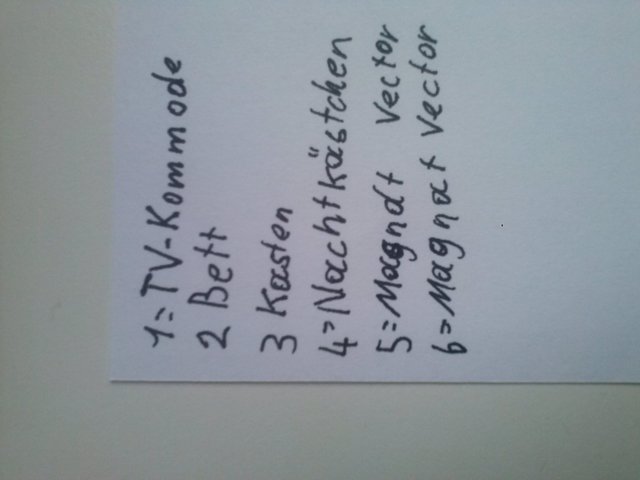 1=TV-Kommode
2 Bett
3 Kasten
4=Nachtkästchen
5=Magnat Vector
6=Magnat Vector